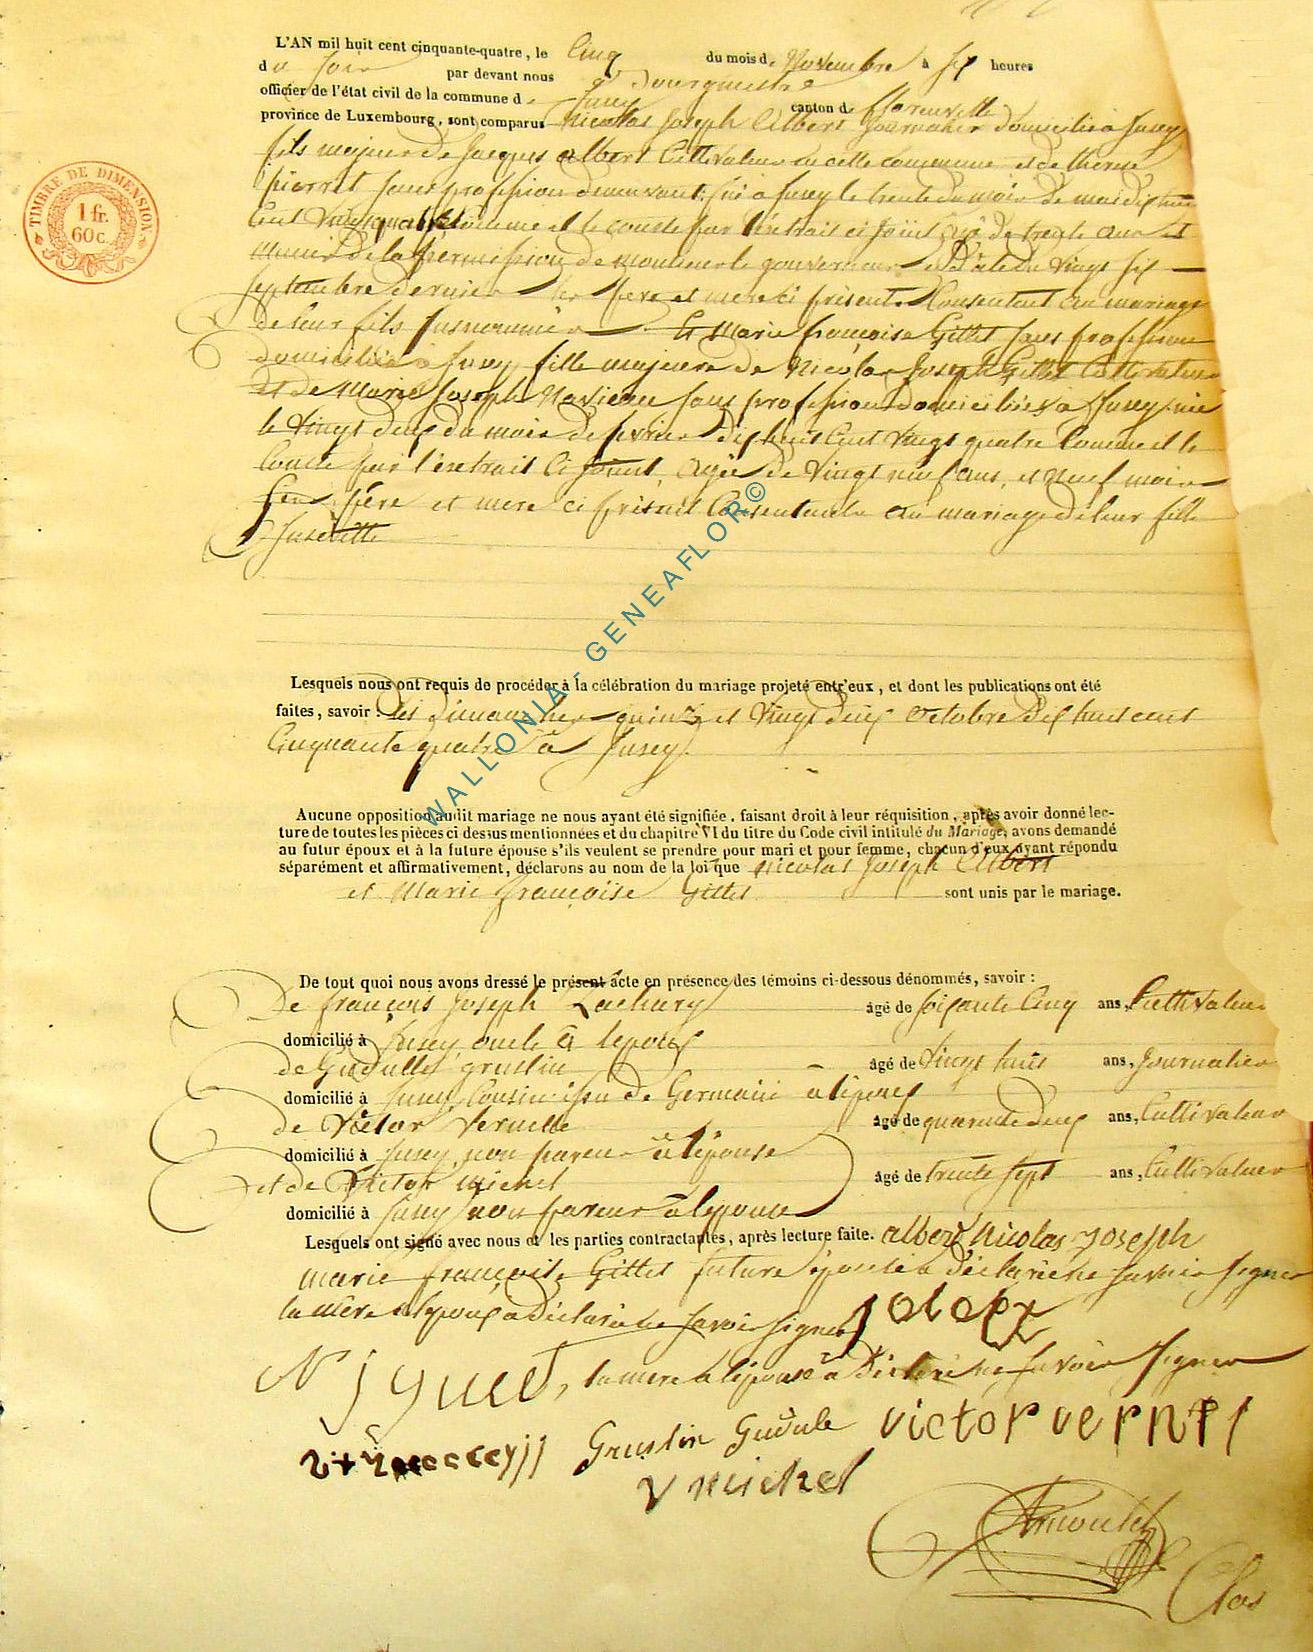 L'AN mil huit cent cinquante-quatre, le Cinq du mois d. Novembre à six heures
du soir par devant nous Bourgmestre
officier de l'état civil de la commune d. Jusey canton d. florenville
province de Luxembourg, sont comparus Nicolas Joseph Albert Journalier domicilié à Jusey
fils majeur de Jacques albert Cultivateur de cette commune et de therese
pierret sans profession demeurant né à Jusey le trente du mois de mai dix huit
Cent vingt quatre comme il le conste par l'extrait ci joint agé de trente ans et
munis de la permission de monsieur le gouverneur en date du vingt six
septembre dernier les père et mere ci présents Consentant au mariage
de leur fils susnommé Et Marie françoise Gillet sans profession
domiciliée à Jusey, fille majeure de Nicolas Joseph Gillet Cultivateur
et de Marie Joseph sans profession domiciliés à Jusey née
le vingt deux du mois de fevrier dix huit Cent vingt quatre Comme il le
Conste par l'extrait Ci joint, agée de vingt neuf ans, et neuf mois
Les père et mere ci présent Consentant au mariage de leur fille
Jusdite
Lesquels nous ont requis de procéder à la célébration du mariage projeté entr'eux, et dont les publications ont été
faites, savoir : les dimanches quinze et vingt deux octobre dix huit cent
Cinquante quatre à Jusey.
Aucune opposition audit mariage ne nous ayant été signifiée, faisant droit à leur réquisition, après avoir donné lec-
ture de toutes les pièces ci dessus mentionnées et du chapitre VI du titre du Code civil intitulé du Mariage, avons demandé
au futur époux et à la future épouse s'ils veulent se prendre pour mari et pour femme, chacun d'eux ayant répondu
séparément et affirmativement, déclarons au nom de la loi que Nicolas Joseph Albert
et Marie françoise Gillet sont unis par le mariage.
De tout quoi nous avons dressé le présent acte en présence des témoins ci-dessous dénommés, savoir :
De françois Joseph Zachary âgé de soixante Cinq ans, Cultivateur
domicilié à Jusey oncle à lepoux
de Gudulle gruslin âgé de Vingt huit ans, Journalier
domicilié à Jusey, Cousin issu de Germain à lépoux
de Victor Vernelle âgé de quarante deux ans, Cultivateur
domicilié à Jusey, non parent à lépouse
et de Victor Michel âgé de trente sept ans, Cultivateur
domicilié à Jusey non parent à lepouse
Lesquels ont signé avec nous et les parties contractantes, après lecture faite. albert Nicolas joseph
marie françoise Gillet future épouse à déclaré ne savoir signer
la mère à lepoux a déclaré ne savoir signer
N J la mere à lépouse à déclaré ne savoir signer
Gruslin Gudule victor
v michel
Clos
TIMBRE DE DIMENSION
1 fr.
60 c.
WALLONIA - GENEAFLOR©